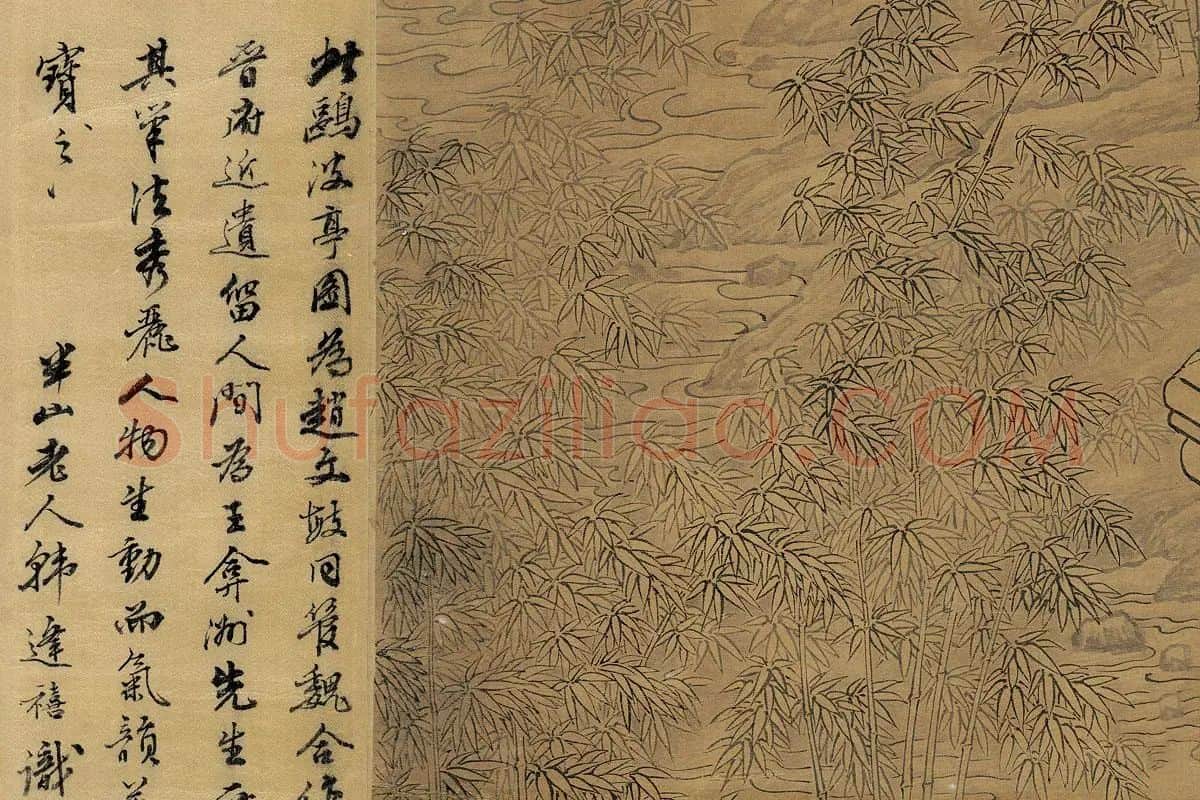 此鷗波亭圖為趙文敏同管魏合
晉府近遺留人間為王弇洲先生
其筆法秀麗人物生動而氣韻
寶之
半山老人韓逢禧識
shufaziliao.COM